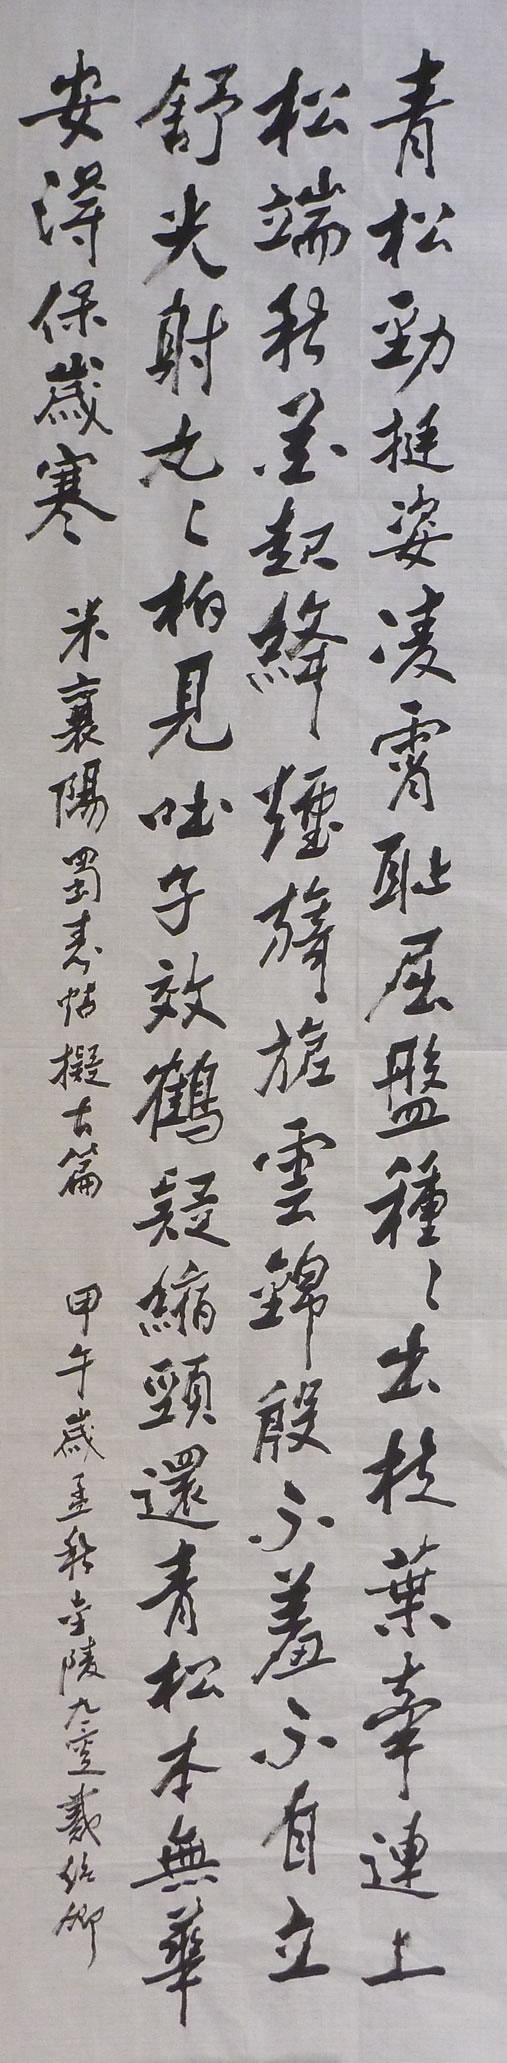 青松勁挺姿凌霄耻屈盤種々出枝葉牽連上
松端秋花起絳煙旖旎雲錦殷不羞不自立
舒光射丸々柏見吐子效鶴疑縮頸還青松本無華
安得保歲寒
米襄陽蜀素帖擬古篇 甲午歲孟秋 陵九 戴 卿